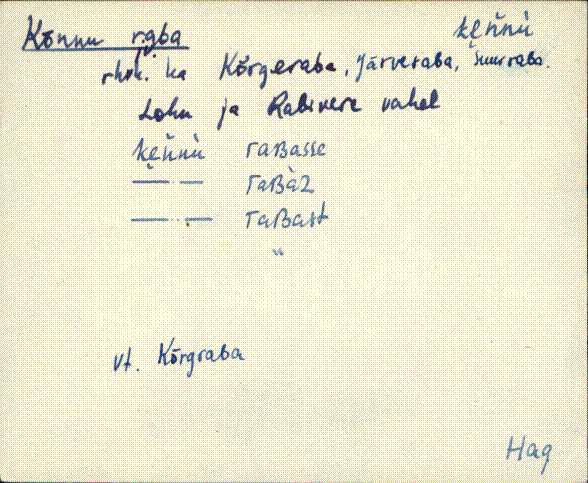 Kõnnu raba ke̮ňnù
rhvk. ka Kõrgeraba, Järveraba, Suurraba.
Lohu ja Rabivere vahel
ke̮ňnù raʙasse
— – raʙàz
— – raʙast
"
vt. Kõrgraba
Hag